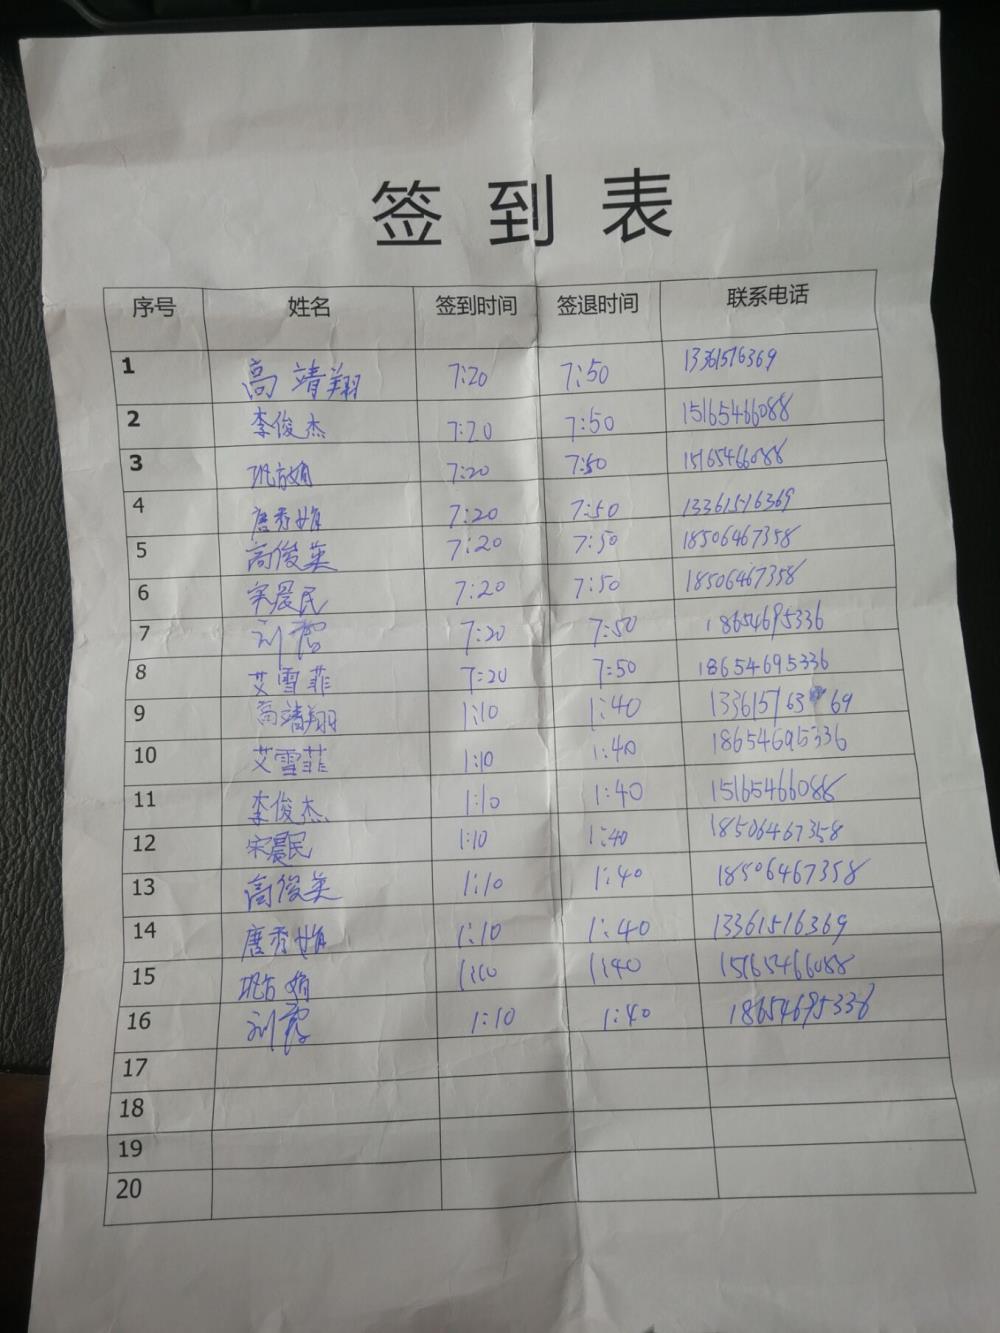 签到表
序号 姓名 签到时间 签退时间 联系电话
1 高靖翔 7:20 7:50 13361516369
2 李俊杰 7:20 7:50 15165466088
3 7:20 7:50 15165466088
4 唐秀娟 7:20 7:50 13361516369
5 高俊英 7:20 7:50 18506467358
6 宋晨民 7:20 7:50 18506467358
7 刘 7:20 7:50 18654695336
8 艾雪菲 7:20 7:50 18654695336
9 高靖翔 1:10 1:40 133615163 69
10 艾雪菲 1:10 1:40 18654695336
11 李俊杰 1:10 1:40 15165466088
12 宋晨民 1:10 1:40 18506467358
13 高俊英 1:10 1:40 18506467358
14 唐秀娟 1:10 1:40 13361516369
15 1:10 1:40 15165466088
16 刘 1:10 1:40 18654695336
17
18
19
20